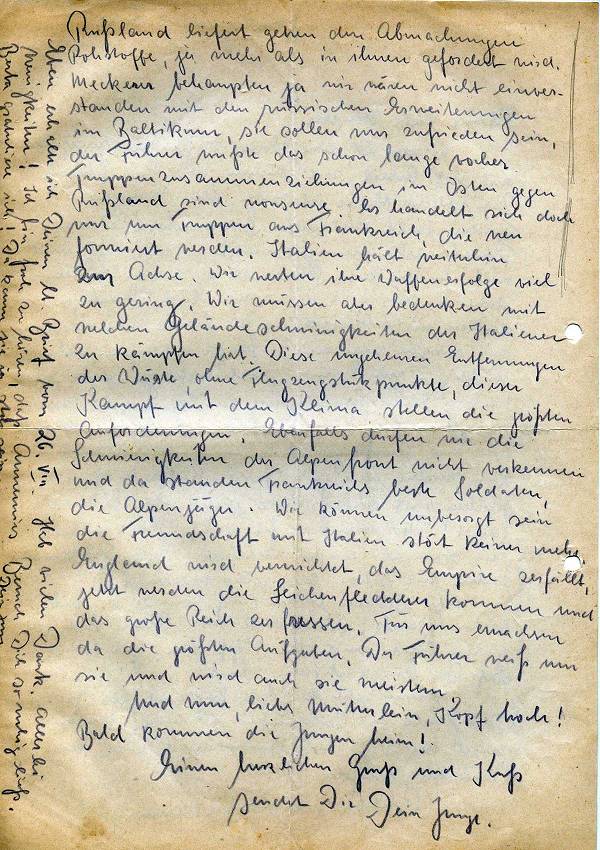 Rußland liefert gehen den Abmachungen
Rohstoffe, ja mehr als in ihnen gefordert wird.
Meckerer behaupten ja wir wären nicht einver-
standen mit den russischen Erweiterungen
im Baltikum, sie sollen nur zufrieden sein,
der Führer wußte das schon lange vorher.
Truppenzusammenziehungen im Osten gegen
Rußland sind nonsense. Es handelt sich doch
nur um Truppen aus Frankreich, die neu
formiert werden. Italien hält weiterhin
zur Achse. Wir werten ihre Waffenerfolge viel
zu gering. Wir müssen aber bedenken mit
welchen Geländeschwierigkeiten der Italiener
zu kämpfen hat. Diese ungeheuren Entfernungen
der Wüste, ohne Flugzeugstützpunkte, dieser
Kampf mit dem Klima stellen die größten
Anforderungen. Ebenfalls dürfen wir die
Schwierigkeiten der Alpenfront nicht verkennen
und da standen Frankreichs beste Soldaten,
die Alpenjäger. Wir können unbesorgt sein
die Freundschaft mit Italien stört keiner mehr.
England wird vernichtet, das Empire zerfällt,
jetzt werden die Leichenfledderer kommen und
das große Reich zerfressen. Für uns erwachsen
da die größten Aufgaben. Der Führer weiß um
sie und wird auch sie meistern.
Und nun, liebes Mütterlein, Kopf hoch!
Bald kommen die Jungen heim!
Einen herzlichen Gruß und Kuß
sendet Dir Dein Junge.
Eben erhielt ich Deinen lb. Brief vom 26. VIII. Hab vielen Dank. Allerlei
Neuigkeiten! Ich bin froh zu hören, daß Besuch Dich so ruhig ließ.
gratuliere ich! Da kann sie ja stolz sein